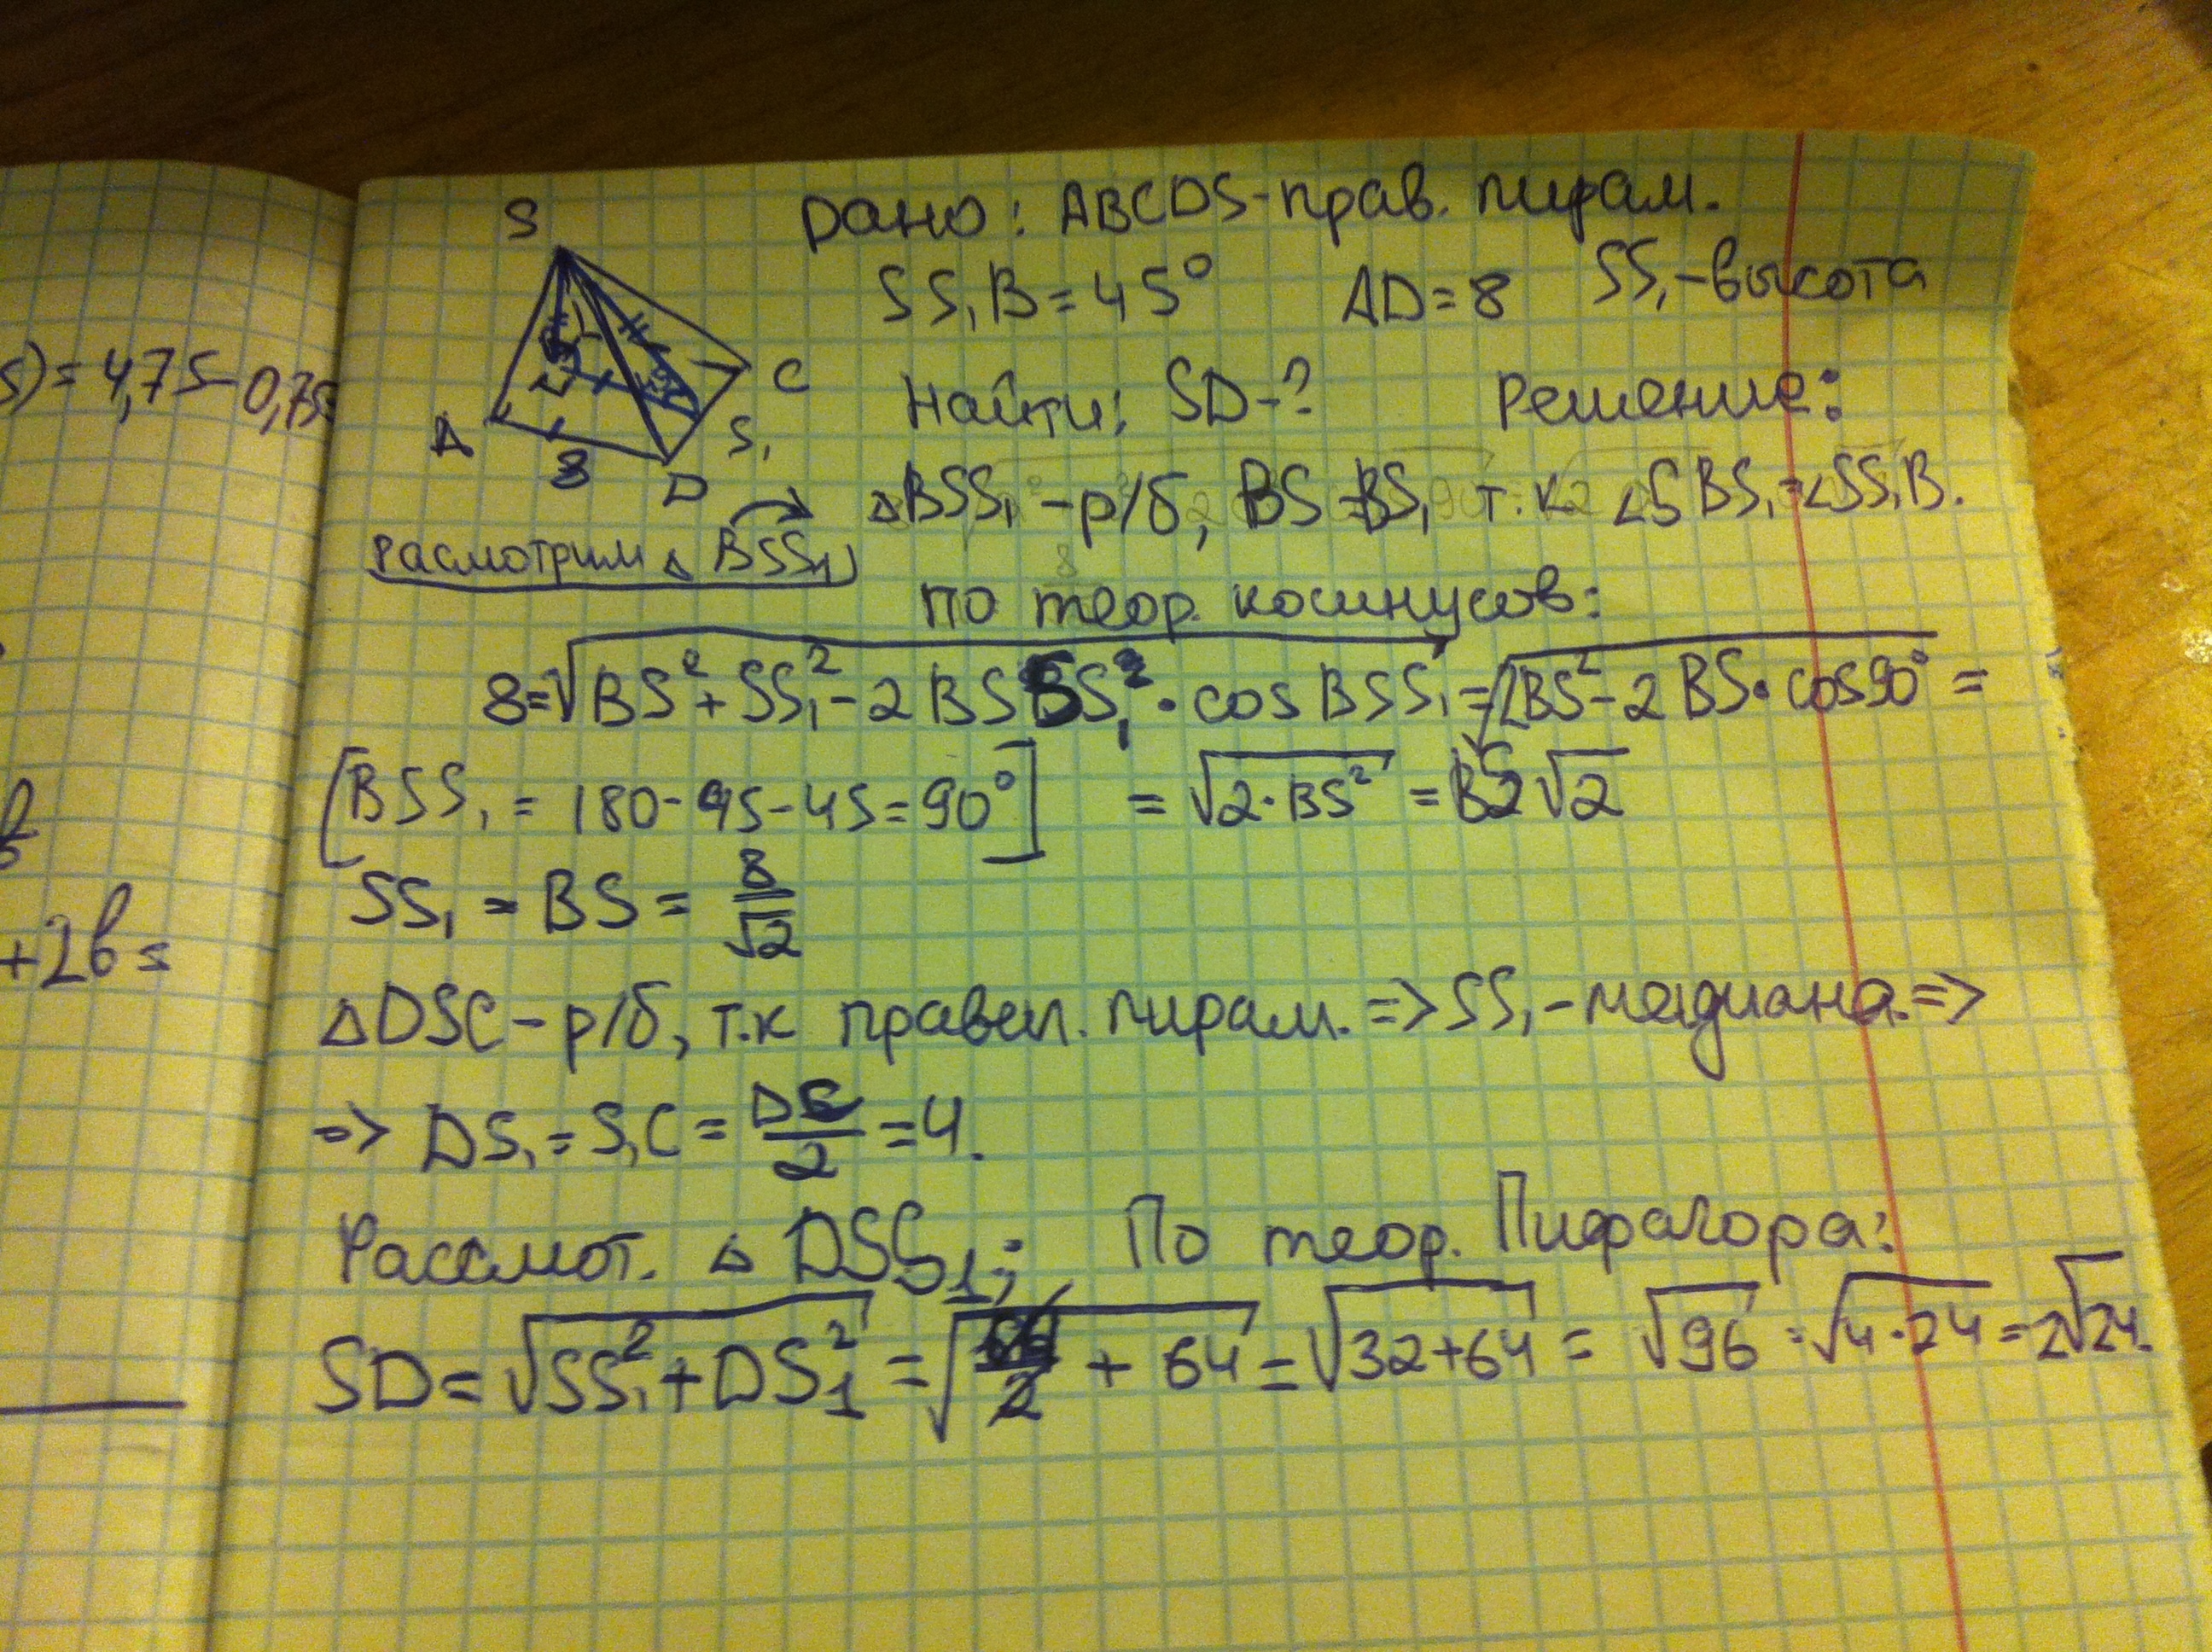 S
Дано: ABCDS-прав. пирам.
SS₁B = 45° AD=8 SS₁-высота
s)= 4,75-0,75
A
C
S₁
8
D
Найти: SD-? Решение:
Расмотрим △ BSS₁
△BSS₁ -р/б, BS=BS₁ т.к ∠SBS₁=∠SS₁B.
по теор. косинусов:
8=√BS²+SS₁²-2BS BS₁²·cos BSS₁ =√2BS²-2BS·cos90° =
[BSS₁ = 180-45-45=90°] = √2·BS² = BS√2
SS₁ = BS = 8/√2
+2b=
△DSC-р/б, т.к правил. пирам. => SS₁-медиана =>
=> DS₁=S₁C = DC/2 =4.
Рассмот. △ DSS₁; По теор. Пифагора:
SD= √SS₁²+DS₁² = √64/2 + 64 = √32+64 = √96 = √4·24 = 2√24.